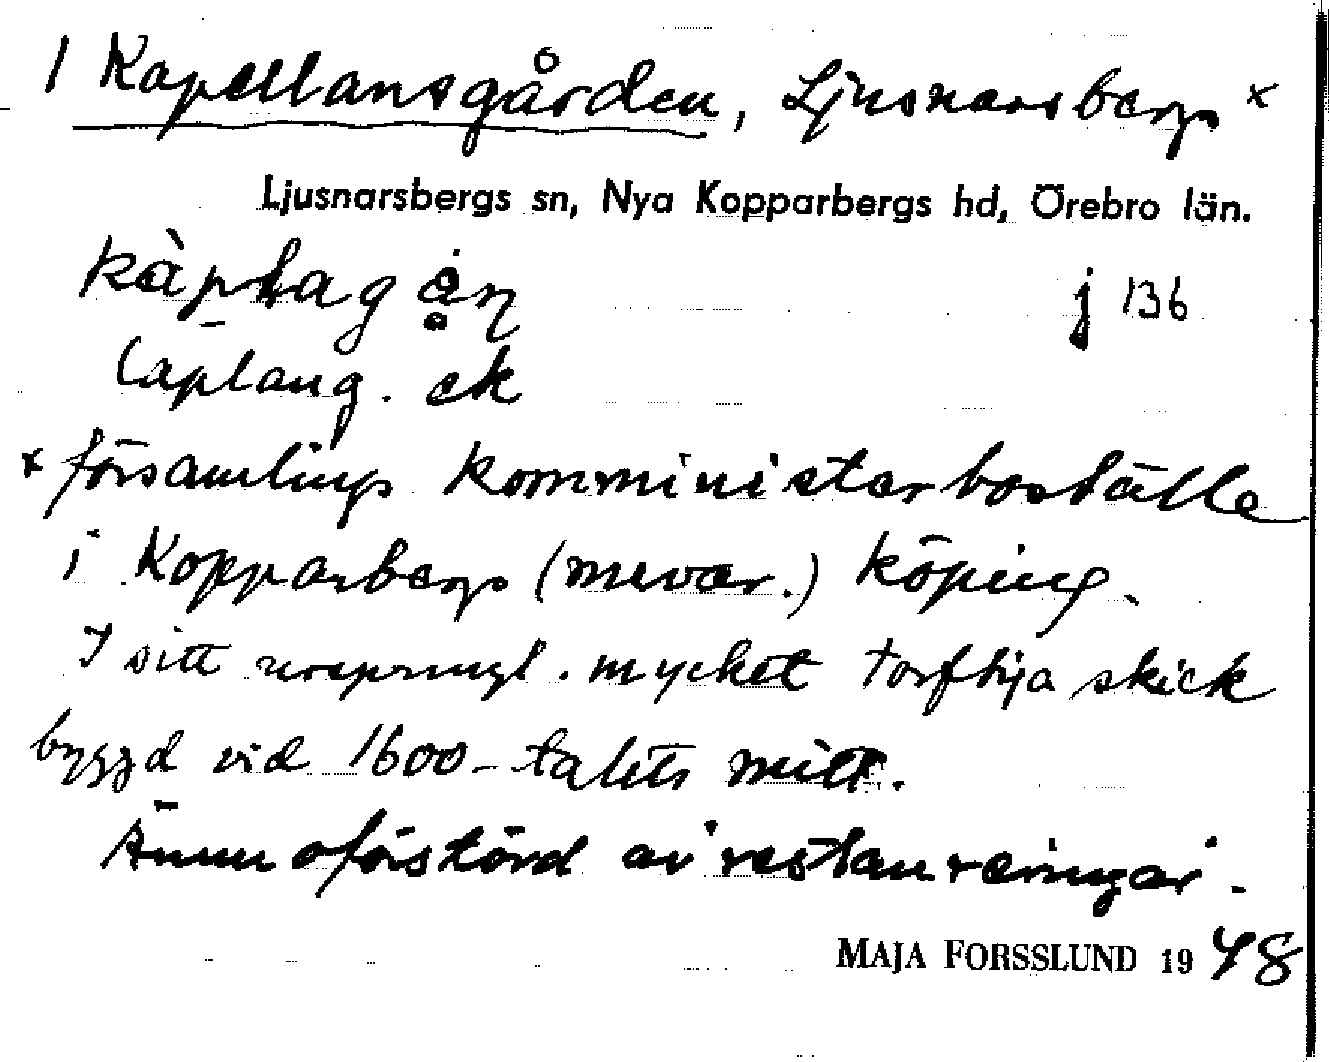 1 Kapellansgården, Ljusnarsbergs x
Ljusnarsbergs sn, Nya Kopparbergs hd, Örebro län.
j 136
ck
x församlings komministerboställe
i Kopparbergs (nuvar.) köping.
I sitt ursprungl. mycket torftiga skick
byggd vid 1600-talets mitt.
Ännu oförstörd av restaureringar.
MAJA FORSSLUND 1948